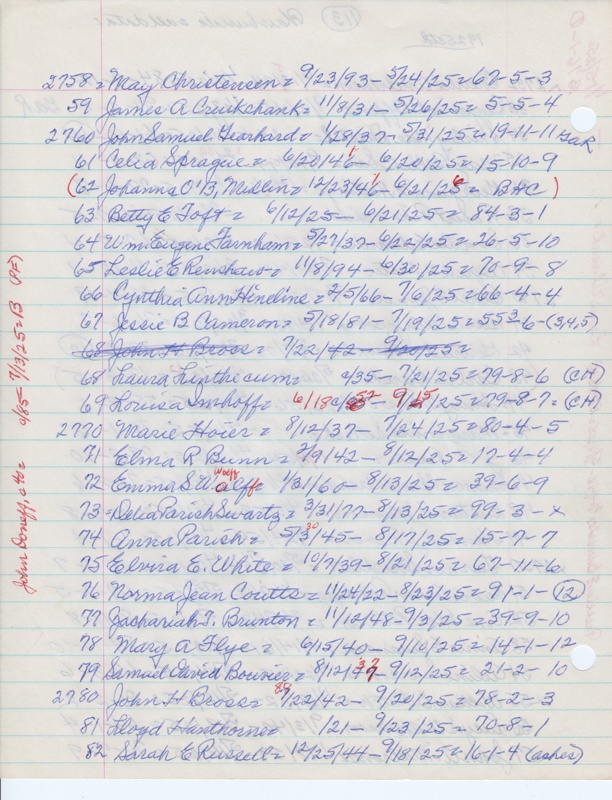 2758 = May Christensen = 9/23/93 - 5/24/25 = 67-5-3
59 James A Cruikshank = 11/8/31 - 5/26/25 = 5-5-4
2760 John Samuel Hearhard = 1/28/37 - 5/31/25 = 19-11-11 GAR
61 Celia Sprague = 6/20/46 - 6/20/25 = 15-10-9
(62 Johanna O'B. Mullin = 12/23/46 - 6/21/25 = B+C)
63 Betty E Toft = 6/12/25 - 6/21/25 = 84-3-1
64 Wm Eugene Farnham = 5/27/37 - 6/22/25 = 26-5-10
65 Leslie E Renshaw = 11/8/94 - 6/30/25 = 70-9-8
66 Cynthia Ann Hineline = 2/5/66 - 7/6/25 = 66-4-4
67 Jessie B Cameron = 5/18/81 - 7/19/25 = 553-6-(3,4,5)
68 John H Bross = 7/22/42 - 9/20/25 =
68 Laura Linthecum = c/35 - 7/21/25 = 79-8-6 (CH)
69 Louisa Imhoff = 6/18 52 - 9/15/25 = 79-8-7 = (CH)
2770 Marie Hoier = 8/12/37 - 7/24/25 = 80-4-5
71 Elma R Bunn = 2/9/42 - 8/12/25 = 17-4-4
72 Emma S. Wolff = 1/31/60 - 8/13/25 = 39-6-9
73 = Delia Parish Swartz = 3/31/77 - 8/13/25 = 99-3-x
74 Anna Parish = 5/30/45 - 8/17/25 = 15-7-7
75 Elvira E. White = 10/7/39 - 8/21/25 = 67-11-6
76 Norma Jean Coutts = 11/24/22 - 8/23/25 = 91-1-(12)
77 Zachariah T. Brunton = 11/12/48 - 9/3/25 = 39-9-10
78 Mary A Flye = 6/15/40 - 9/10/25 = 14-1-12
79 Samuel David Bouvier = 8/12/37 - 9/12/25 = 21-2-10
2780 John H Bross = 7/22/42 - 9/20/25 = 78-2-3
81 Lloyd Hawthorne /21 - 9/23/25 = 70-8-1
82 Sarah E Russell = 12/25/44 - 9/18/25 = 16-1-4 (ashes)
John Doneff, c/85 - 7/13/25 = B (PF)